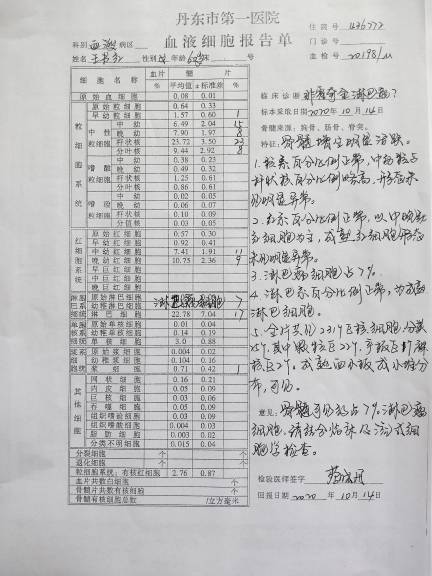 丹东市第一医院
血液细胞报告单
住院号
门诊号
血检号 201981
科别 血液 病区
姓名 性别 年龄 床 号
细胞名称 血片 髓片
% 平均值 ±标准差 %
原始血细胞 0.08 0.01
粒细胞系统
原始粒细胞 0.64 0.33
早幼粒细胞 1.57 0.60 1
中性粒细胞
中幼 6.49 2.04 15
晚幼 7.90 1.97 8
杆状核 23.72 3.50 23
分叶核 9.44 2.92 8
嗜酸粒细胞
中幼 0.38 0.23
晚幼 0.49 0.32
杆状核 1.25 0.61
分叶核 0.86 0.61
嗜碱粒细胞
中幼 0.02 0.05
晚幼 0.06 0.07
杆状核 0.10 0.09
分叶核 0.03 0.05
红细胞系统
原始红细胞 0.57 0.30
早幼红细胞 0.92 0.41
中幼红细胞 7.41 1.91 11
晚幼红细胞 10.75 2.36 9
早巨红细胞
中巨红细胞
晚巨红细胞
淋巴系统
原始淋巴细胞
幼稚淋巴细胞 淋巴瘤细胞 7
淋巴细胞 22.78 7.04 17
单核系统
原始单核细胞 0.01 0.04
幼稚单核细胞 0.14 0.19
单核细胞 3.0 0.88
浆细胞系统
原始浆细胞 0.004 0.02
幼稚浆细胞 0.104 0.16
浆细胞 0.71 0.42 1
其他细胞
网状细胞 0.16 0.21
内皮细胞 0.05 0.09
巨核细胞 0.03 0.06
吞噬细胞 0.05 0.09
组织嗜碱细胞 0.03 0.09
组织嗜酸细胞 0.004 0.03
脂肪细胞 0.003 0.02
分类不明细胞 0.015 0.04
分裂细胞 个 个
退化细胞 个 个
粒细胞系统:有核红细胞 2.76 0.87
血片共数白细胞 个
骨髓片共数有核细胞 个
骨髓有核细胞总数 /立方毫米
临床诊断 非霍奇金淋巴瘤?
标本采取日期 2020年10月14日
骨髓来源:胸骨、肠骨、脊突。
特征:骨髓增生明显活跃。
1.粒系百分比例正常,中幼粒占
杆状核百分比例略高,形态未
见明显异常。
2.红系百分比例正常,以中晚幼
红细胞为主,成熟红细胞形态
未见明显异常。
3.淋巴瘤细胞占7%。
4.淋巴系百分比例正常,为成熟
淋巴细胞。
5.全片共见231个巨核细胞,分类
25个,其中颗粒巨22个,产板巨1个,裸
核巨2个,成熟血小板成小堆分
布,可见。
意见:骨髓可见约占7%淋巴瘤
细胞,请结合临床及流式细
胞学检查。
检验医师签字
回报日期 2020年10月14日